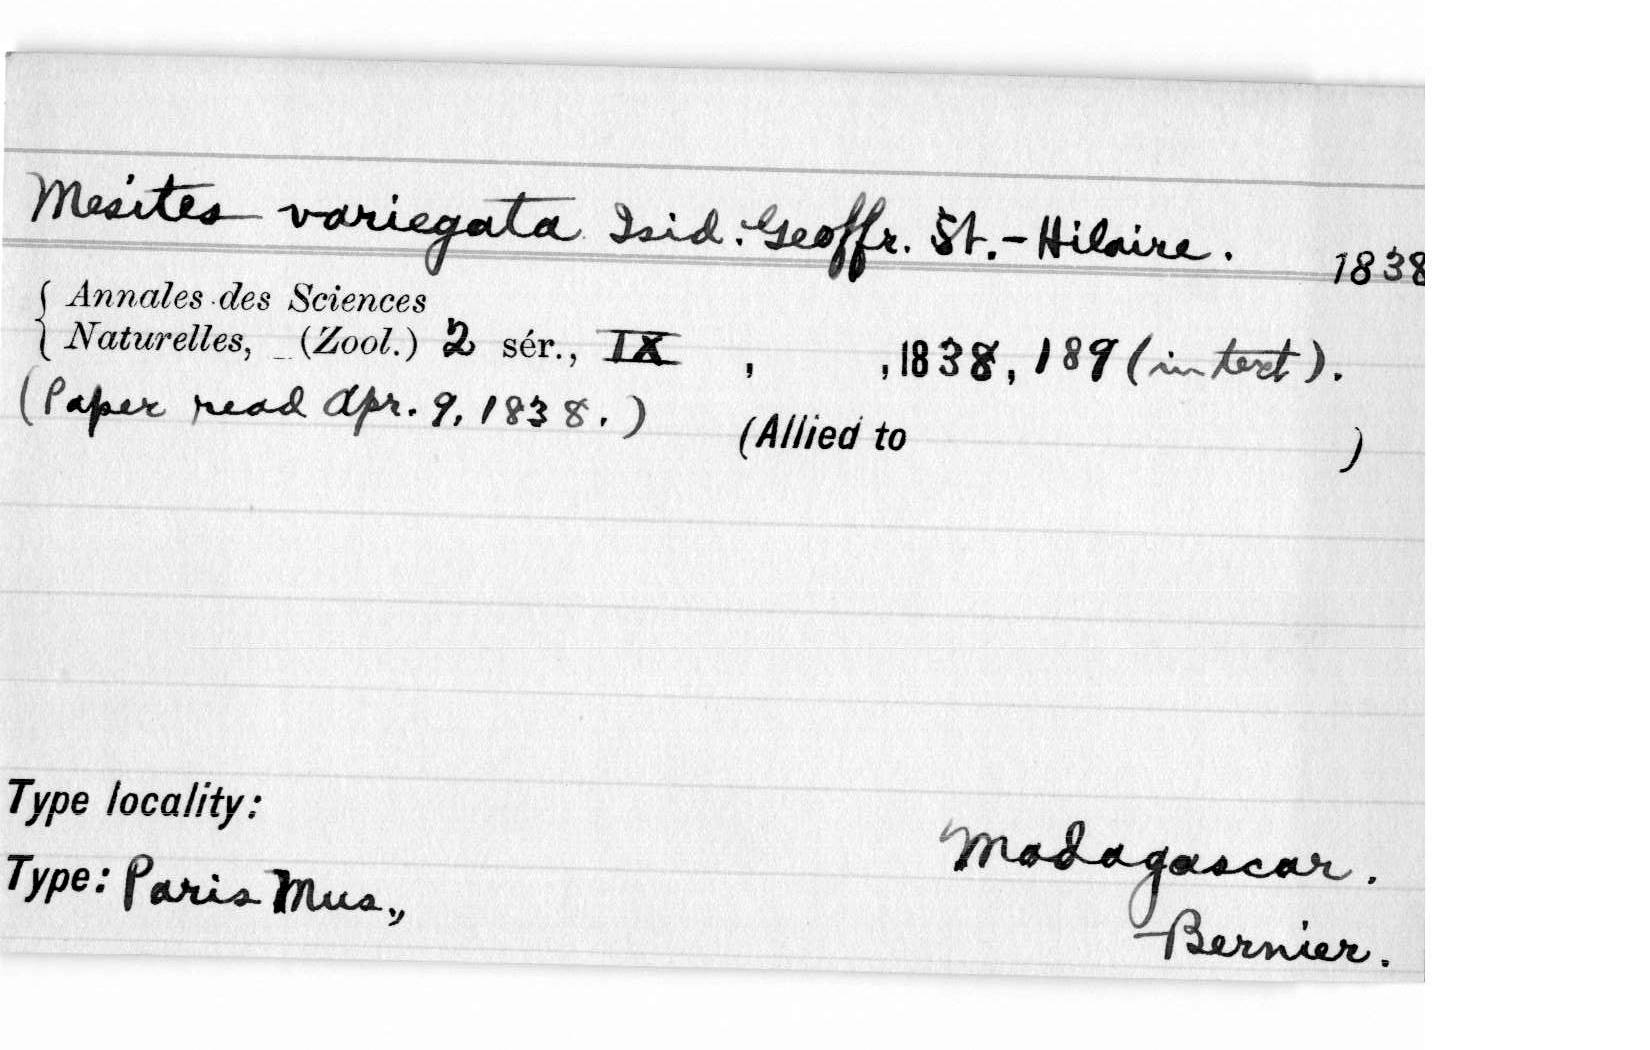 Mesites variegata Isid. Geoffr. St.-Hilaire. 1838
Annales des Sciences
Naturelles, (Zool.) 2 sér., IX , , 1838, 189 (in text).
(Paper read Apr. 9, 1838.)
(Allied to )
Type locality:
Madagascar.
Type: Paris Mus.,
Bernier.